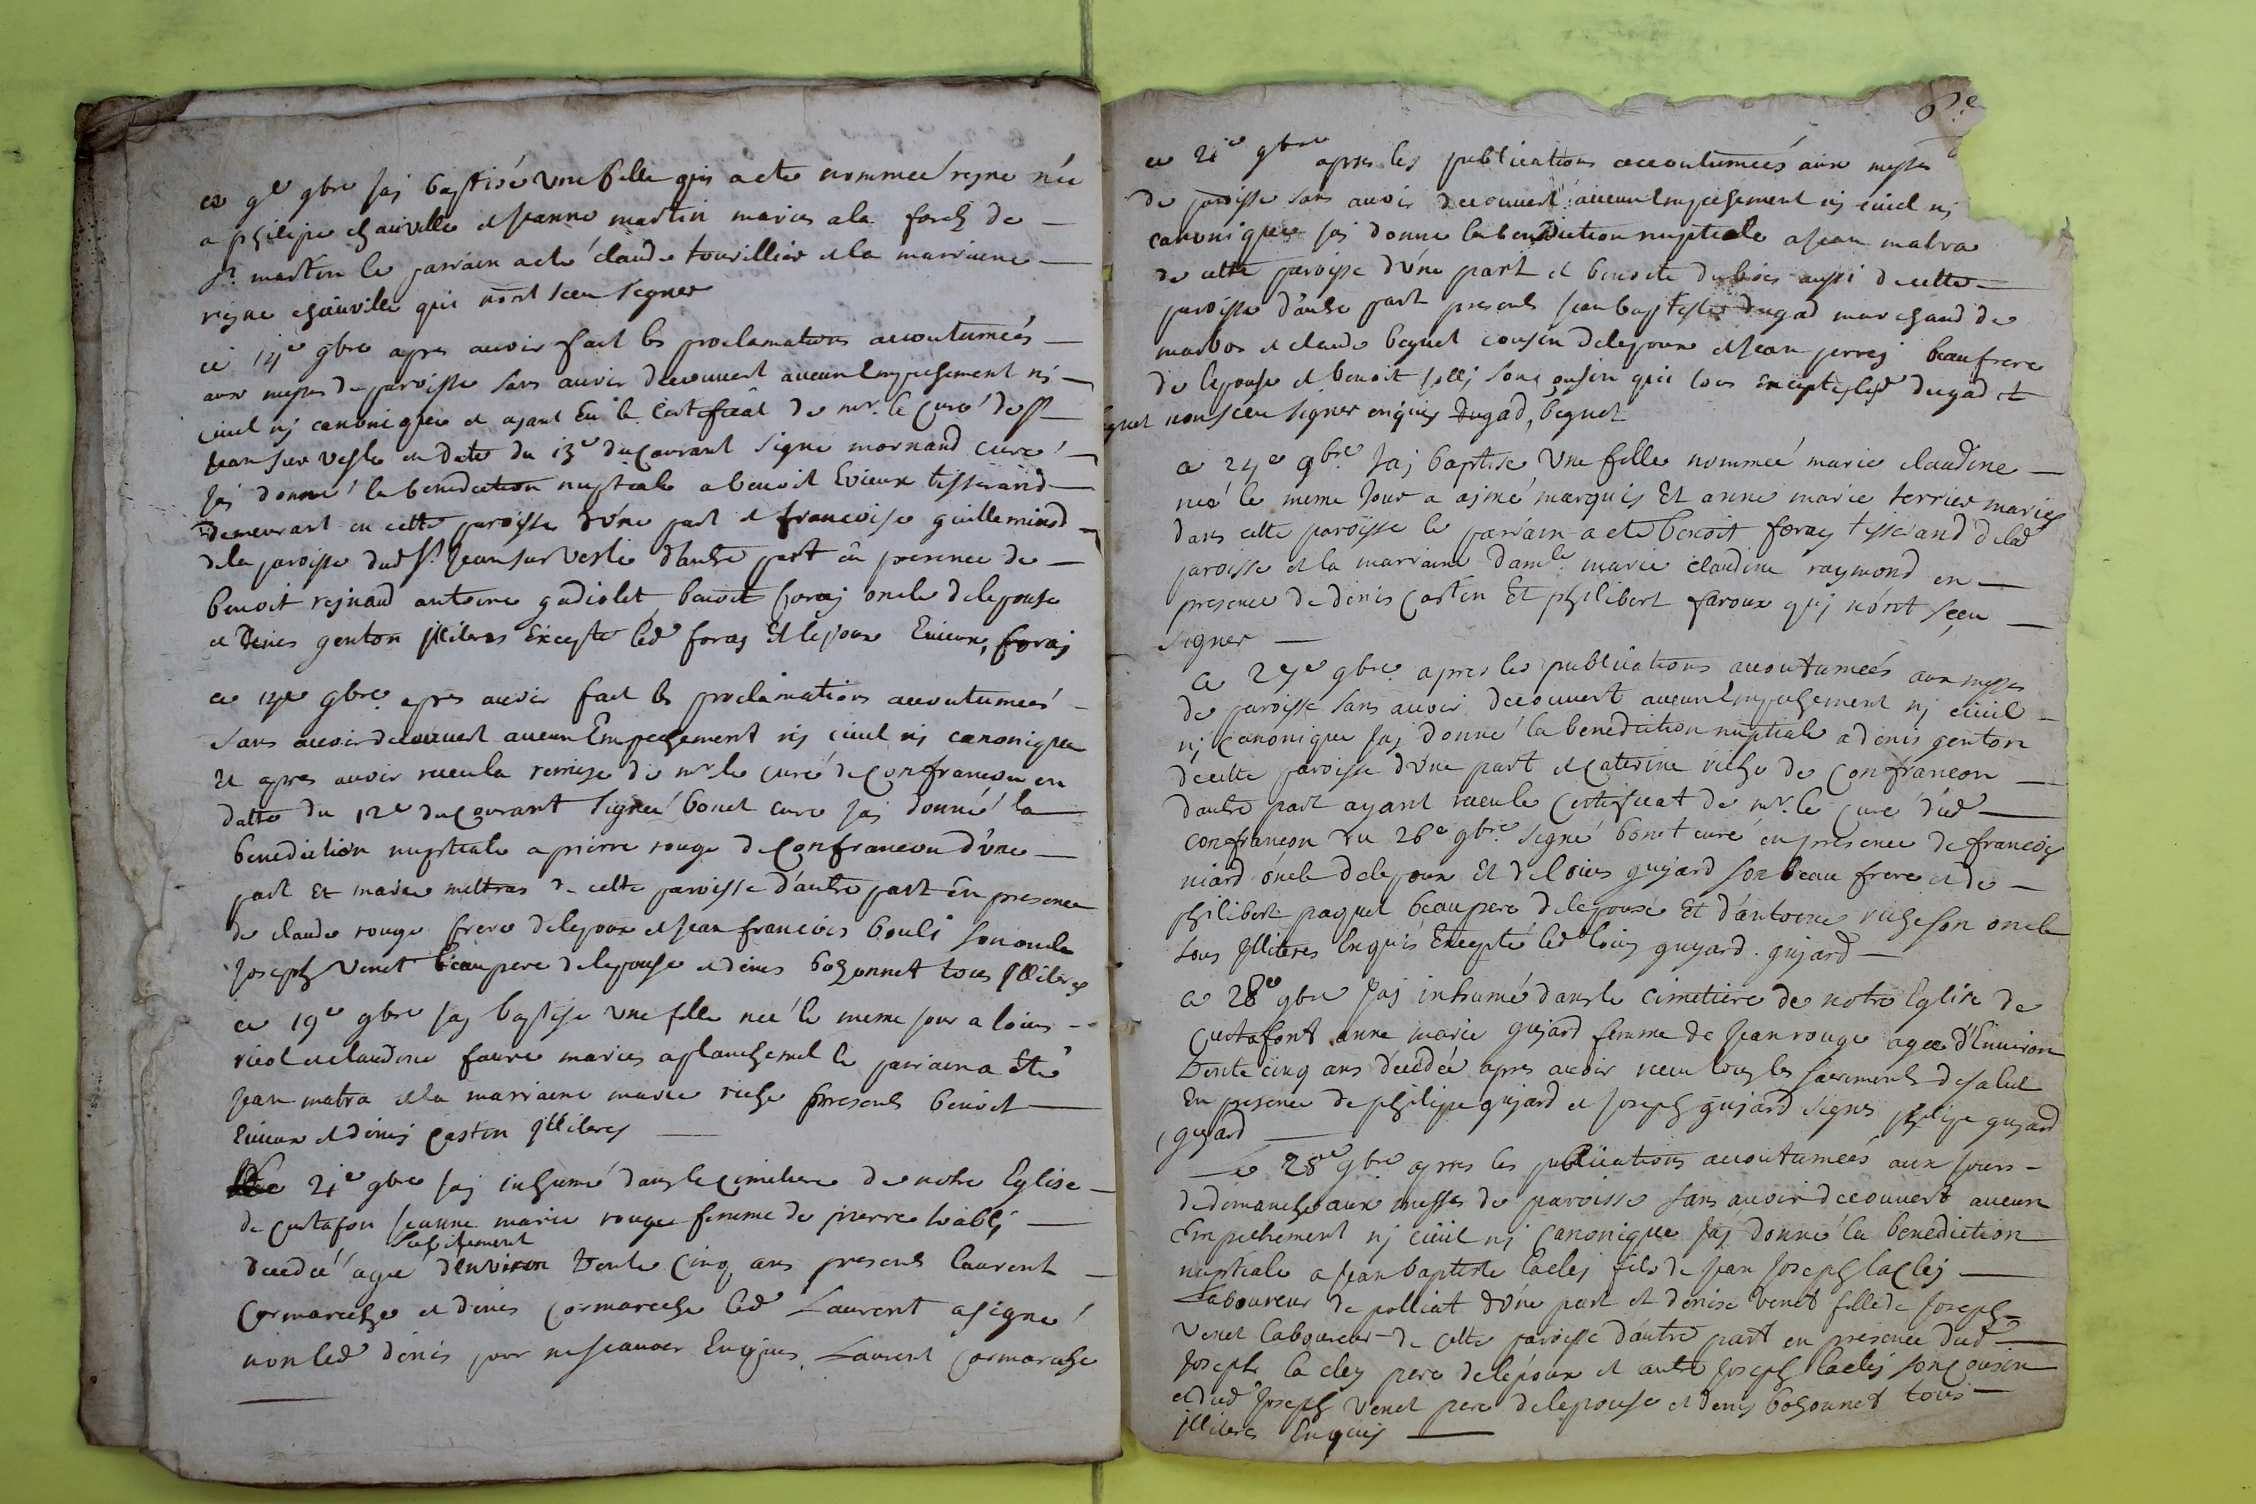 ce 9e 9bre jaj baptisé une fille qui a ete nommeé reyne née
a philipe chauville et jeanne martin maries a la forest de
st martin le parrain a eté claude touillier et la marriene
reyne chauville qui nont sceu signer
ce 14e 9bre apres avoir fait les proclamations accoutumeés
aux messes de paroisse sans avoir decouvert aucun empeschement ni
civil nj canonique et ajant Eu le certificat de mr. le curé de st
jean sur vesle en datte du 13e du courant signé mornand curé
jaj donné la benediction nuptiale a benoit Evieux tisserand
demeurant en cette paroisse d'une part et francoise guillemind
de la paroisse dud st jean sur vesle d'autre part en presence de
benoit rejnaud antoine gadiolet benoit foraj oncle de lepouse
et denis genton illiteres Excepté led foraj Et lepoux Evieux, foraj
ce 14e 9bre apres avoir fait les proclamations accoutumeés
sans avoir decouvert aucun Empeschement nj civil nj canonique
et apres avoir receu la remise de mr le curé de confrancon en
datte du 12e du courant signeé bonet curé jaj donné la
benediction nuptiale a pierre rouge de confrancon d'une
part Et marie mettras de cette paroisse d'autre part en presence
de claude rouge frere de lepoux et jean francois bouli son oncle
joseph Venet beaupere de lepouse et denis bozonnet tous illiteres
ce 19e 9bre jaj baptise une fille neé le meme jour a louis
viol et claudine faure maries a planchemel le parrain a été
jean matra et la marriene marie riche presents benoit
Evieux et denis caston illiteres
ce 21e 9bre jaj inhumé dans le cimetiere de notre Eglise
de curtafon jeanne marie rouge femme de pierre
subitement
decedeé ageé d'environ trente cinq ans presents laurent
cormareche et denis cormareche led Laurent a signé
non led denis pour ne scavoir Enquis Laurent cormareche
6e
ce 21e 9bre apres les publications accoutumeés aux messes
de paroisse sans avoir decouvert aucun empeschement nj civil nj
canonique jaj donne la benediction nuptiale a jean matra
de cette paroisse d'une part et benoite dubois aussi de cette
paroisse d'autre part presents jean baptiste dugad marchand de
marbos et claude beguet cousin de lepoux et jean perrej beaufrere
de lepouse et benoit jollj son cousin qui tous exceptes led dugad et
beguet nont sceu signer enquis Dugad, béguet
ce 24e 9bre jaj baptisé Une fille nommeé marie claudine
neé le meme jour a ajmé marquis Et anne marie terrier maries
dans cette paroisse le parrain a ete benoit foraj tisserand de lad
paroisse et la marraine damle marie claudine raymond en
presence de denis caston Et philibert faroux quj n'ont sceu
signer
ce 27e 9bre apres les publications accoutumeés aux messes
de paroisse sans avoir decouvert aucun Empeschement nj civil
nj canonique jaj donné la benediction nuptiale a denis genton
de cette paroisse d'une part et caterine riche de confrancon
d'autre part ayant receu le certificat de mr. le curé dud
confrancon du 26e 9bre signé bonet curé en presence de francois
niard oncle de lepoux Et de louis gujard son beau frere et de
philibert paquet beaupere de lepouse Et d'antoine riche son oncle
tous illiteres Enquis Excepté led louis gujard. gujard
ce 28e 9bre jaj inhumé dans le cimetiere de notre Eglise de
curtafont anne marie gujard femme de jean rouge ageé d'Environ
trente cinq ans decedée apres avoir receu tous les sacrements de salut
En presence de philipe gujard et joseph gujard signes philipe gujard
gujard
Le 28e 9bre apres les publications accoutumeés aux jours
de demanche aux messes de paroisse sans avoir decouvert aucun
Empechement nj civil nj canonique jaj donné la benediction
nuptiale a jean baptiste laclej fils de jean joseph laclej
Laboureur de polliat d'une part et denise venet fille de joseph
venet laboureur de cette paroisse d'autre part en presence dud
joseph laclej pere de lepoux et autre joseph laclej son cousin
et dud joseph venet pere de lepouse et denis bozonnet tous
illiteres Enquis